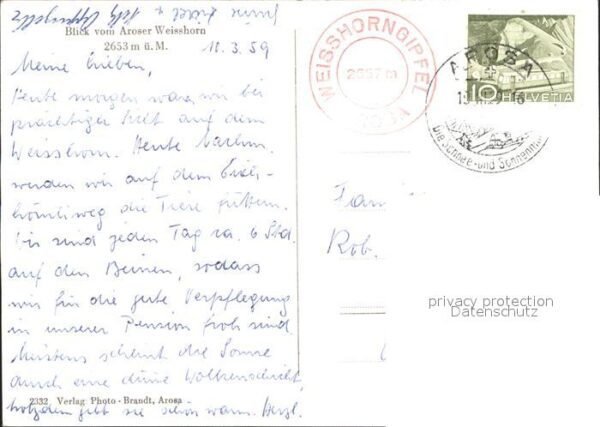 Blick vom Aroser Weisshorn
2653 m ü. M.
11. 3. 59
Meine Lieben,
Heute morgen waren wir bei
prächtiger Kält auf dem
Weisshorn. Heute Nachm.
werden wir auf dem Eich-
hörnliweg die Tiere füttern.
Wir sind jeden Tag ca. 6 Std.
auf den Beinen, sodass
wir für die gute Verpflegung
in unserer Pension froh sind.
Meistens scheint die Sonne
durch eine dünne Wolkenschicht,
trotzdem gibt sie schön warm. Herzl.
2332 Verlag Photo-Brandt, Arosa
WEISSHORNGIPFEL
2657 m
AROSA
10 HELVETIA
AROSA
Die Schnee- und Sonnen
Fam
Rob.
privacy protection
Datenschutz